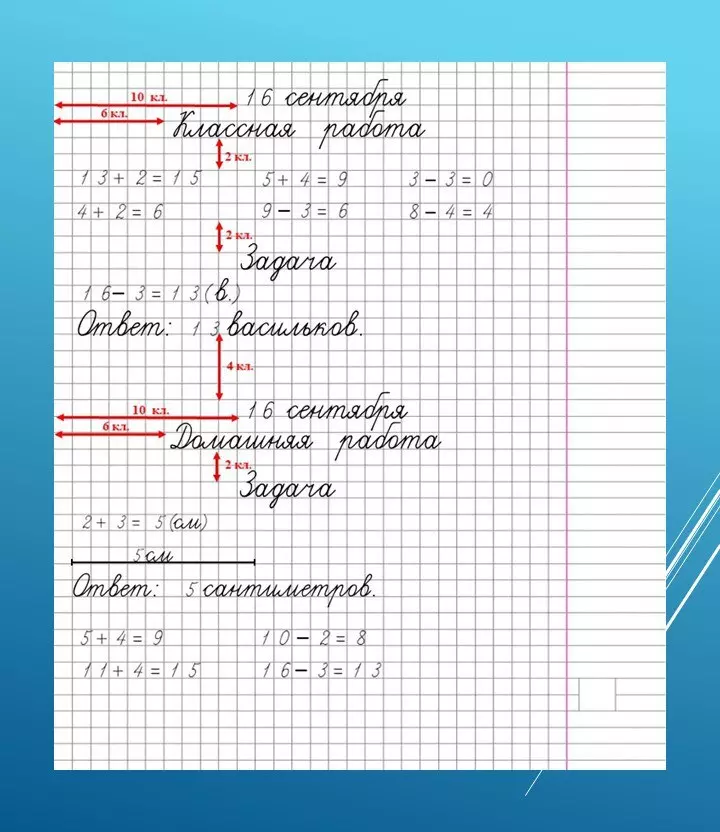 10 кл. 16 сентября
6 кл. Классная работа
2 кл.
13+2=15 5+4=9 3-3=0
4+2=6 9-3=6 8-4=4
2 кл.
Задача
16-3=13(в.)
Ответ: 13 васильков.
4 кл.
10 кл. 16 сентября
6 кл. Домашняя работа
2 кл.
Задача
2+3=5(см)
5см
Ответ: 5 сантиметров.
5+4=9 10-2=8
11+4=15 16-3=13